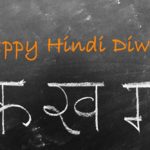 appy Hindi Diw
क ख ग